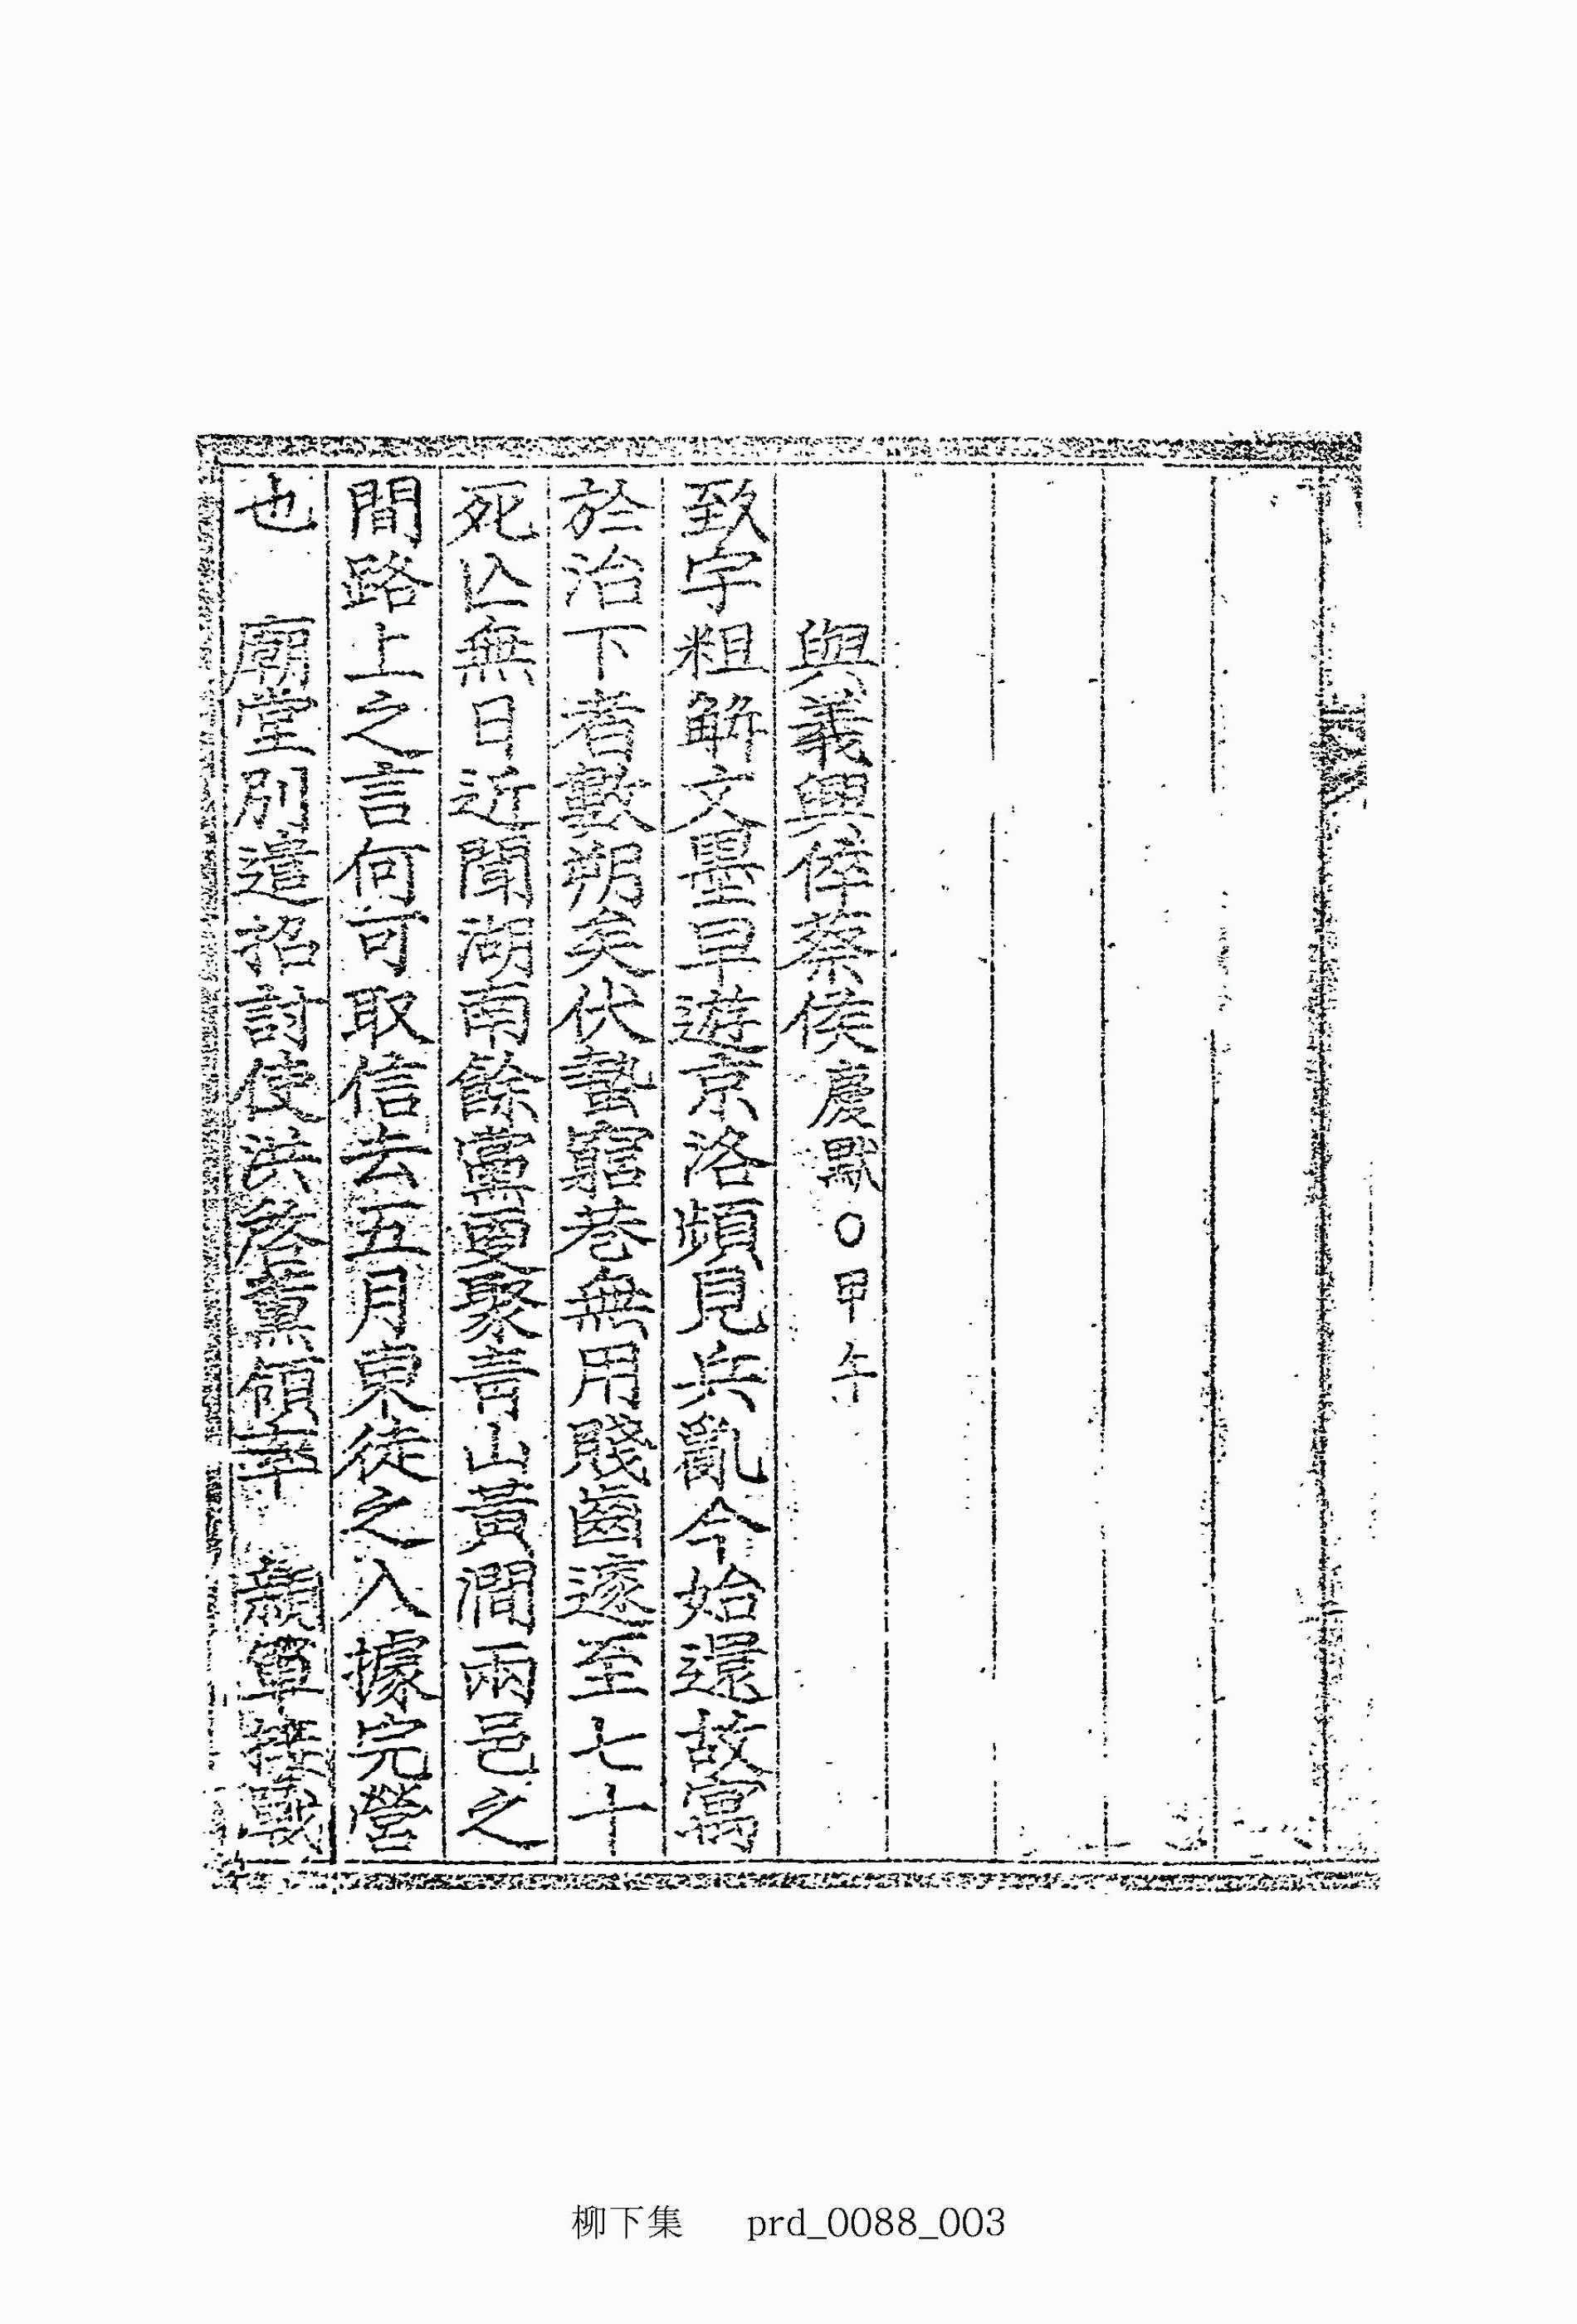 與義興倅蔡侯慶默○甲午
致宇粗解文墨早遊京洛頻見兵亂今始還故寓
於治下者數朔矣伏蟄窮巷無用賤齒遂至七十
死亾無日近聞湖南餘黨更聚靑山黃澗兩邑之
間路上之言何可取信去五月東徒之入據完營
也 廟堂別遣招討使洪啓薰領率 親軍接戰
柳下集 prd_0088_003